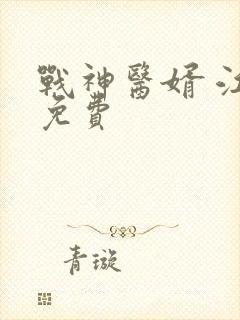 戰神醫婿
免費
青璇